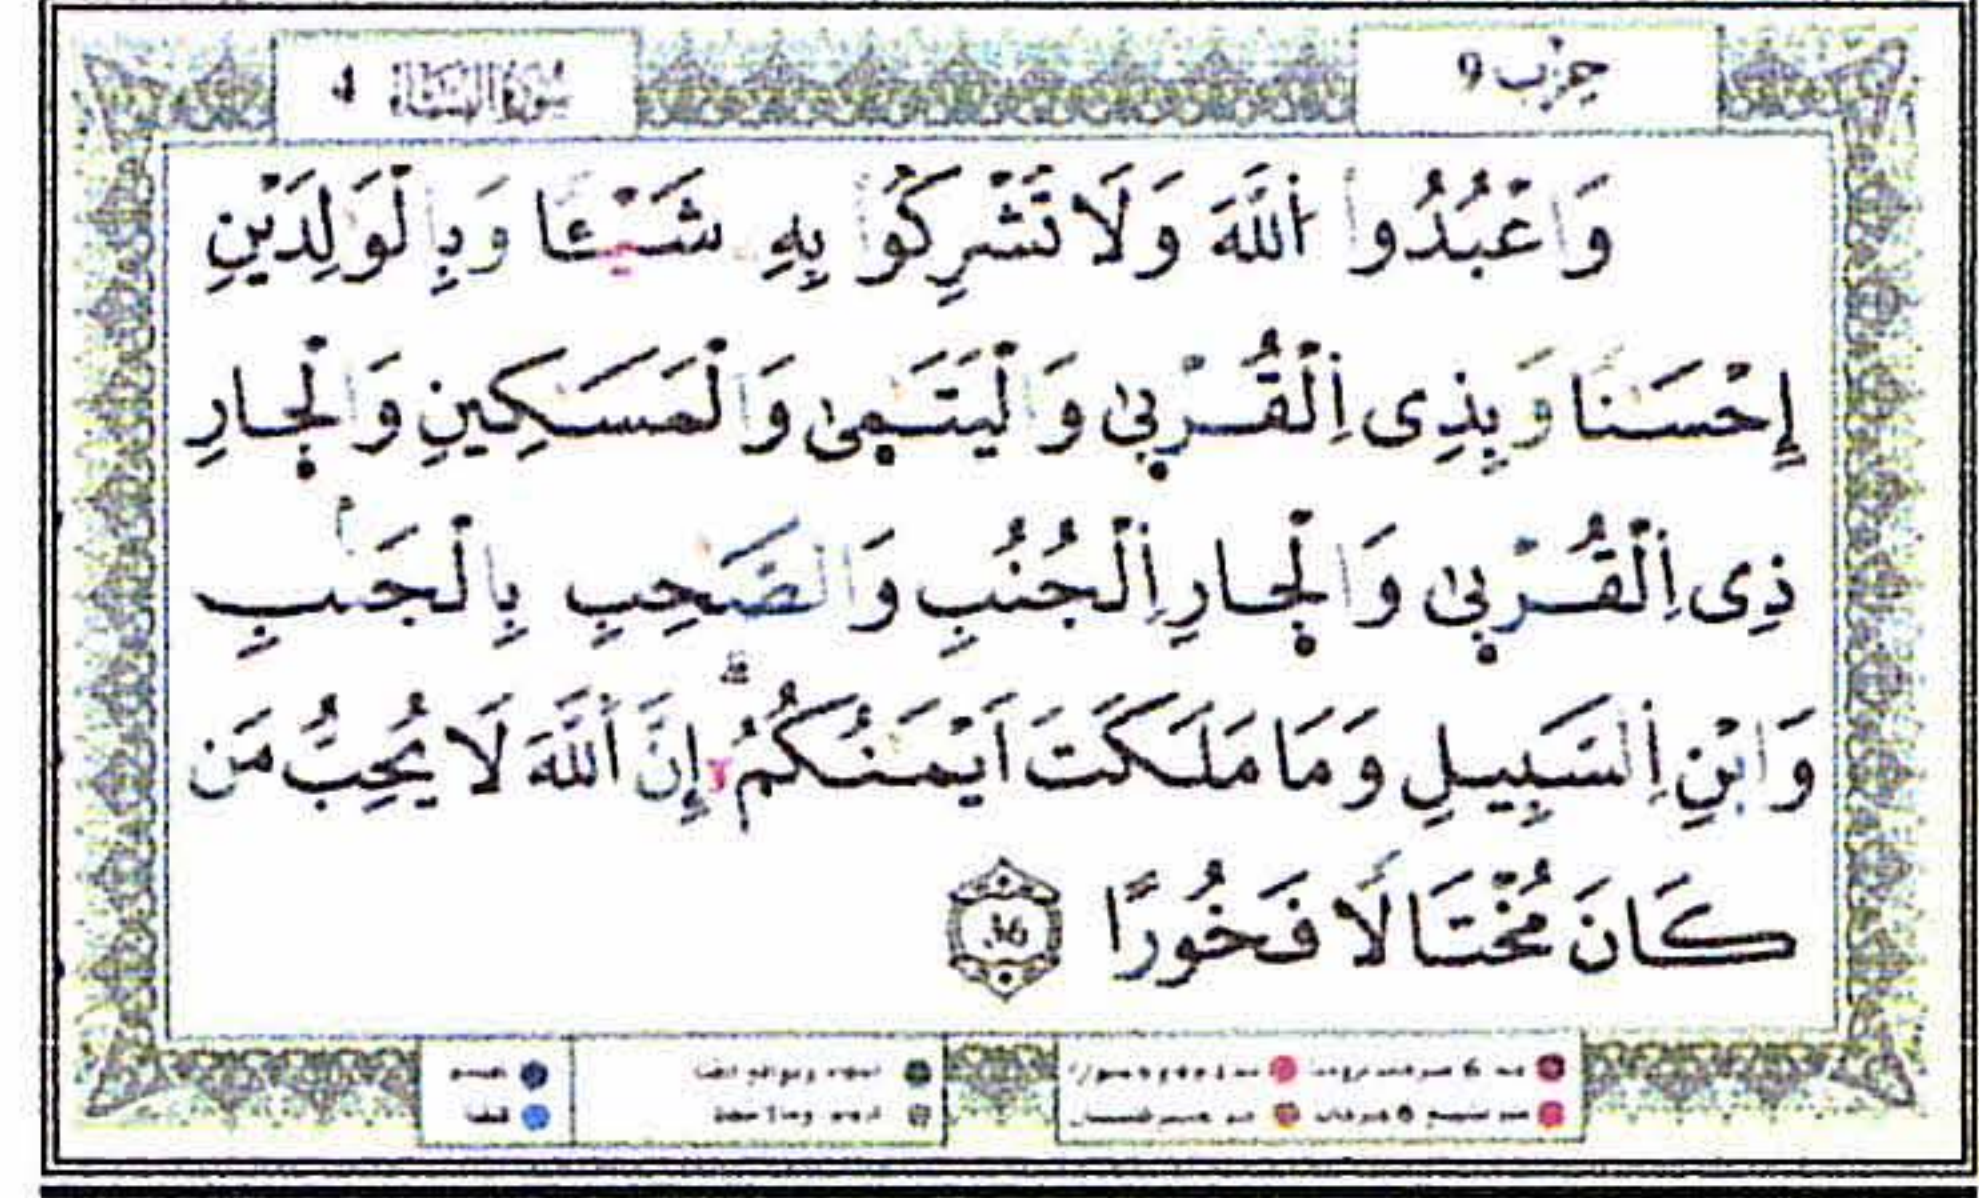 حزب 9
سورة النساء 4
وَاعْبُدُوا اُ۬للَّهَ وَلَا تُشْرِكُوا بِهِۦ شَيْـٔٗا وَبِالْوَٰلِدَيْنِ
إِحْسَٰنٗا وَبِذِى اِ۬لْقُرْب۪ىٰ وَالْيَتَٰم۪ىٰ وَالْمَسَٰكِينِ وَالْج۪ارِ
ذِى اِ۬لْقُرْب۪ىٰ وَالْج۪ارِ اِ۬لْجُنُبِ وَالصَّاحِبِ بِالْجَنۢبِ
وَابْنِ اِ۬لسَّبِيلِ وَمَا مَلَكَتَ اَيْمَٰنُكُمُۥٓۖ إِنَّ اَ۬للَّهَ لَا يُحِبُّ مَن
كَانَ مُخْتَالٗا فَخُورًا 36